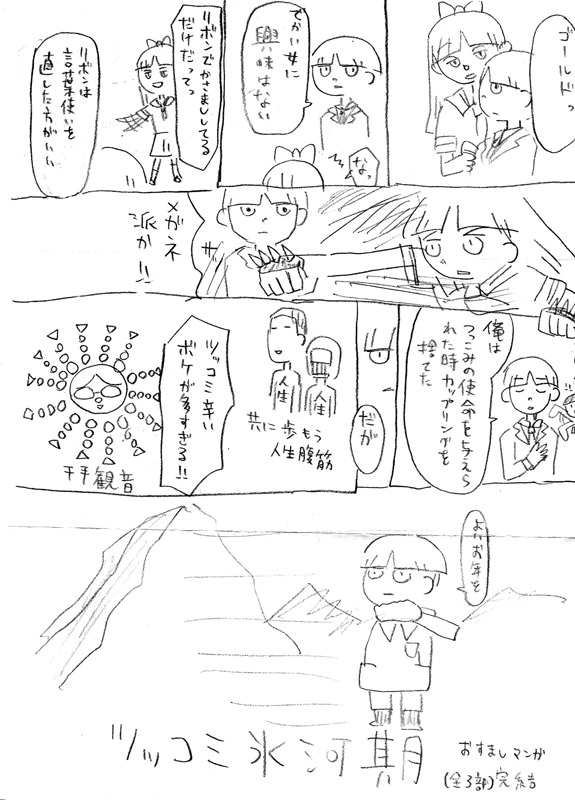 ゴールドっ
でかい女に
興味はない
なっ
リボンでかさましししてる
だけだってっ
リボンは
言葉使いを
直した方がいい
メガネ
派か!!
俺は
つっこみの使命を与えら
れた時カップリングを
捨てた
だが
人生
人生
共に歩もう
人生腹筋
ツッコミ辛い
ボケが多すぎる!!
千手観音
よいお年を
ツッコミ氷河期
おすましマンガ
(全3部)完結